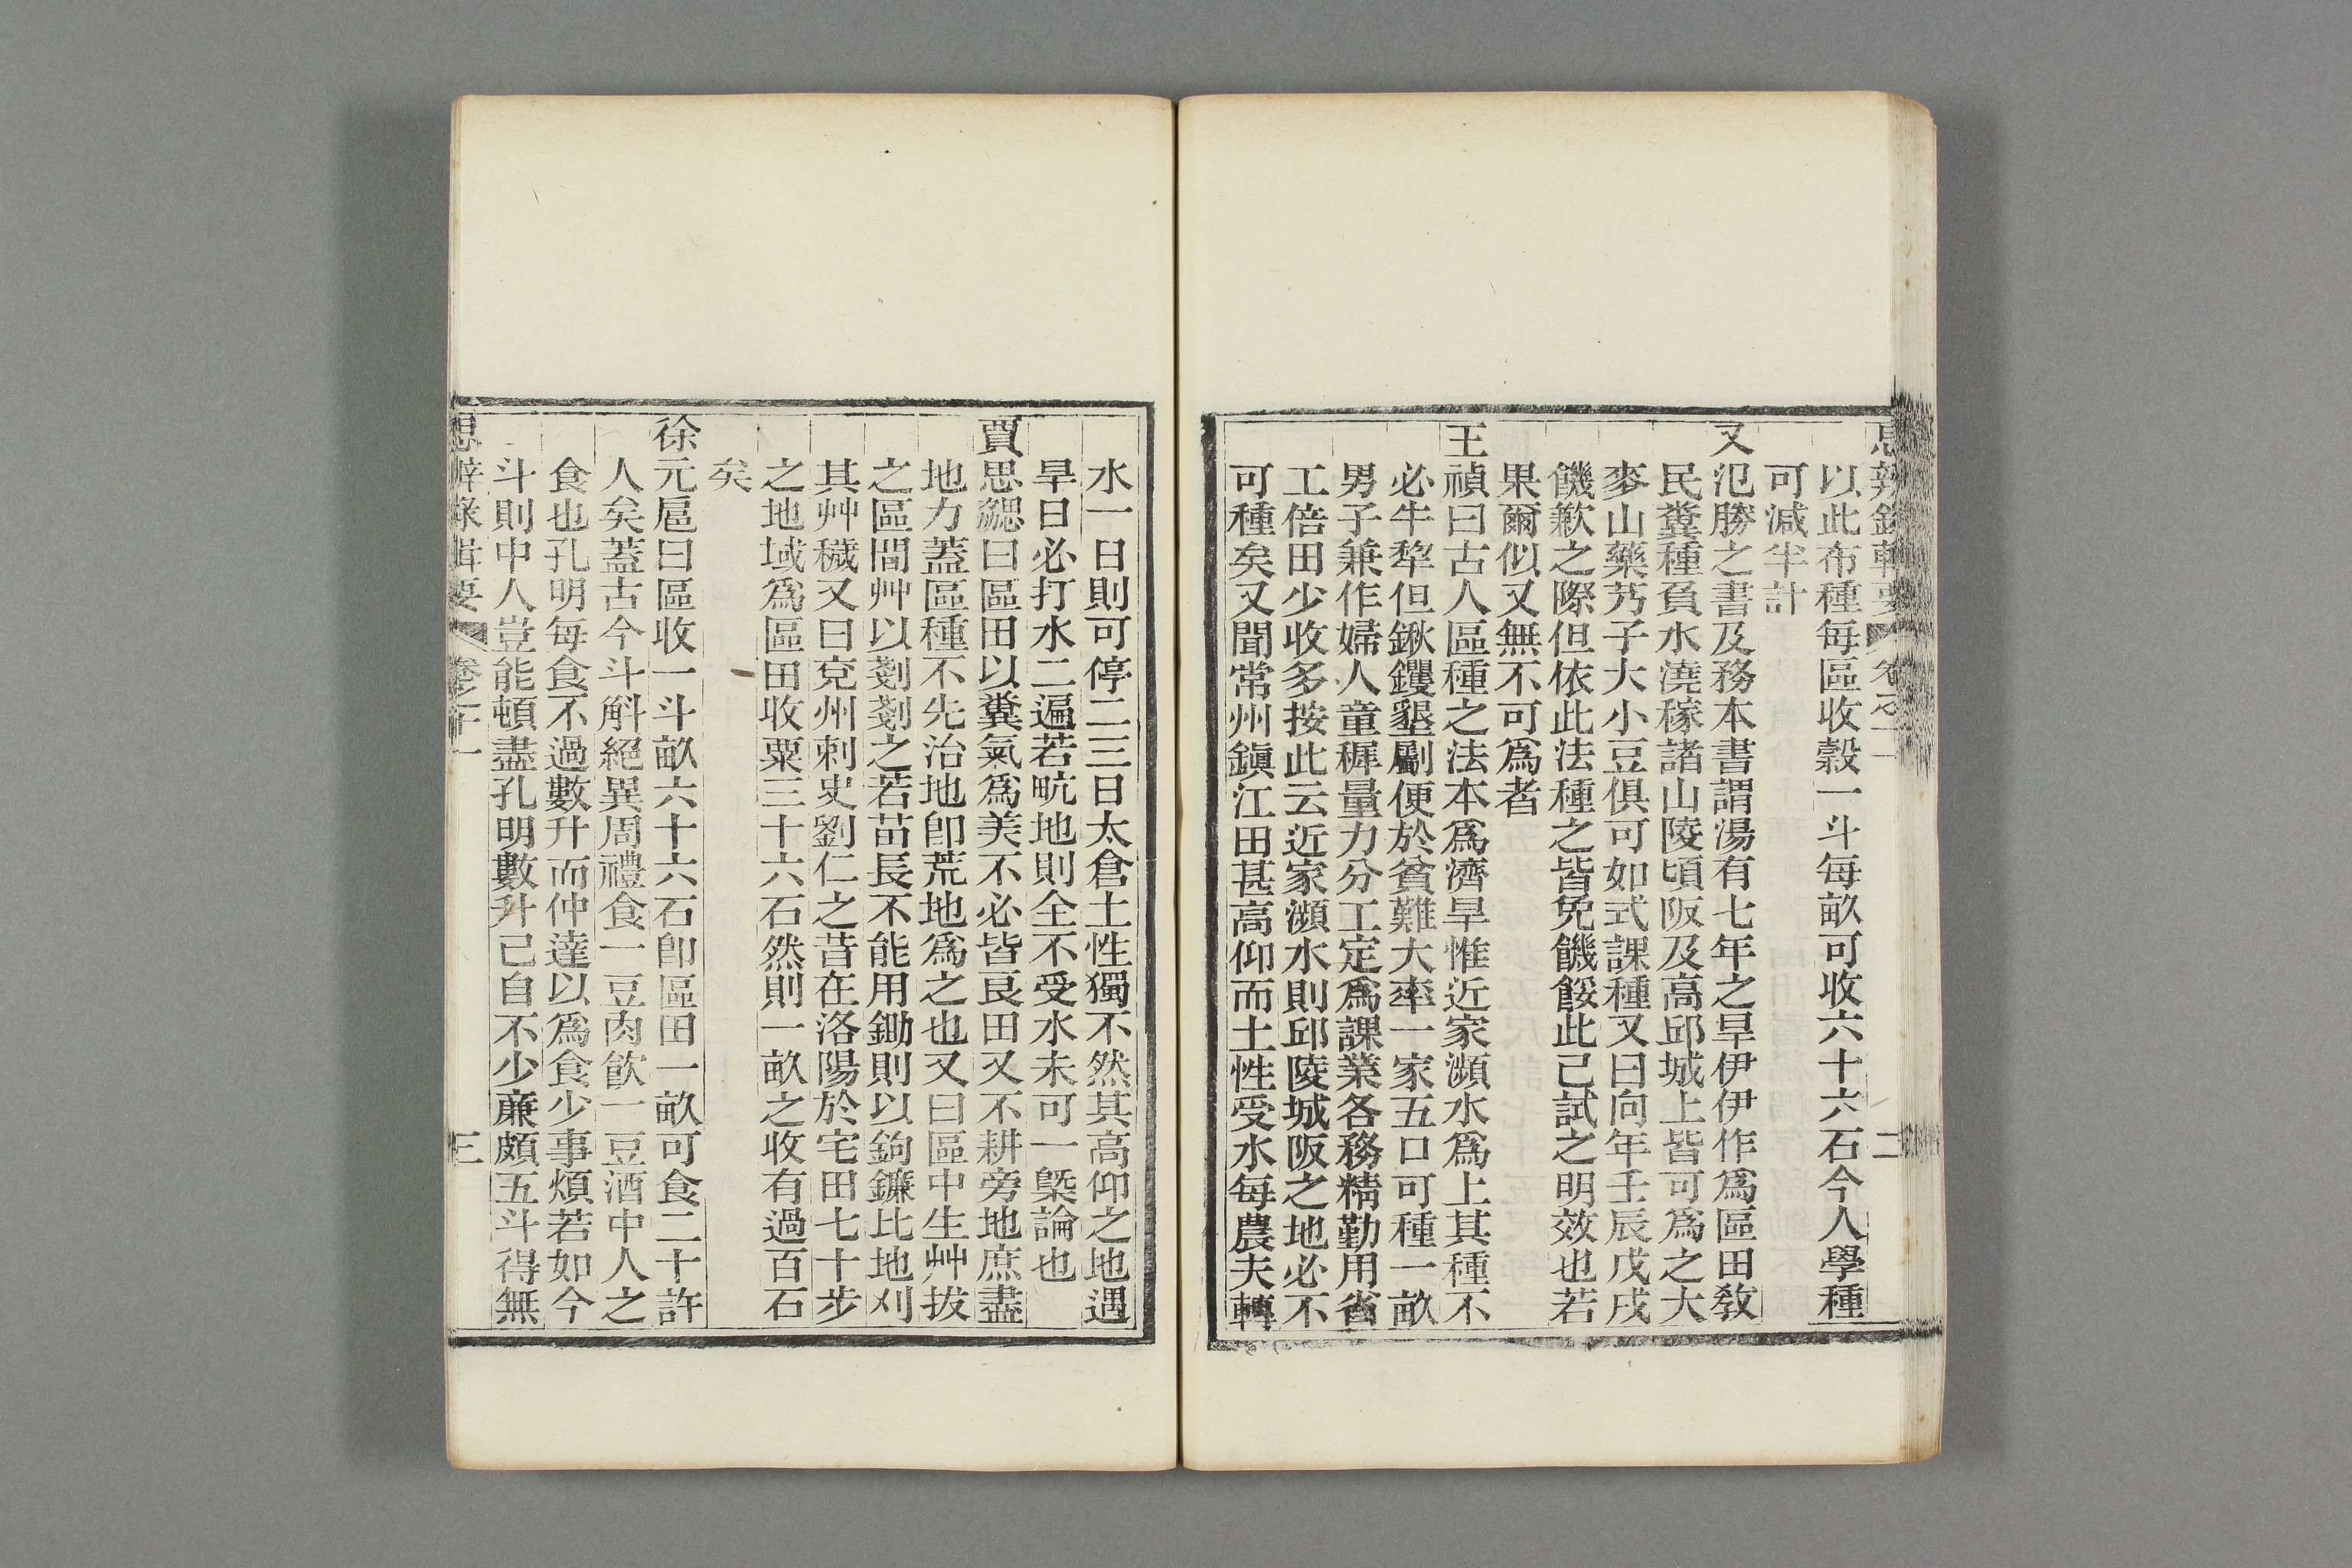 思辨錄輯要 卷之十一 二
以此布種每區收穀一斗每畝可收六十六石今人學種
可減半計
又氾勝之書及務本書謂湯有七年之旱伊伊作爲區田敎
民糞種負水澆稼諸山陵頃阪及高邱城上皆可爲之大
麥山藥芋子大小豆俱可如式課種又曰向年壬辰戊戌
饑歉之際但依此法種之皆免饑餒此已試之明效也若
果爾似又無不可爲者
王禎曰古人區種之法本爲濟旱惟近家瀕水爲上其種不
必牛犂但鍬钁墾劚便於貧難大率一家五口可種一畝
男子兼作婦人童穉量力分工定爲課業各務精勤用省
工倍田少收多按此云近家瀕水則邱陵城阪之地必不
可種矣又聞常州鎭江田甚高仰而土性受水每農夫轉
水一日則可停二三日太倉土性獨不然其高仰之地遇
旱日必打水二遍若畝地則全不受水未可一槩論也
賈思勰曰區田以糞氣爲美不必皆良田又不耕旁地庶盡
地力蓋區種不先治地卽荒地爲之也又曰區中生艸拔
之區間艸以剗剗之若苗長不能用鋤則以鉤鐮比地刈
其艸穢又曰兗州刺史劉仁之昔在洛陽於宅田七十步
之地域爲區田收粟三十六石然則一畝之收有過百石
矣
徐元扈曰區收一斗畝六十六石卽區田一畝可食二十許
人矣蓋古今斗斛絕異周禮食一豆肉飮一豆酒中人之
食也孔明每食不過數升而仲達以爲食少事煩若如今
斗則中人豈能頓盡孔明數升已自不少廉頗五斗得無
思辨錄輯要 卷之十一 三